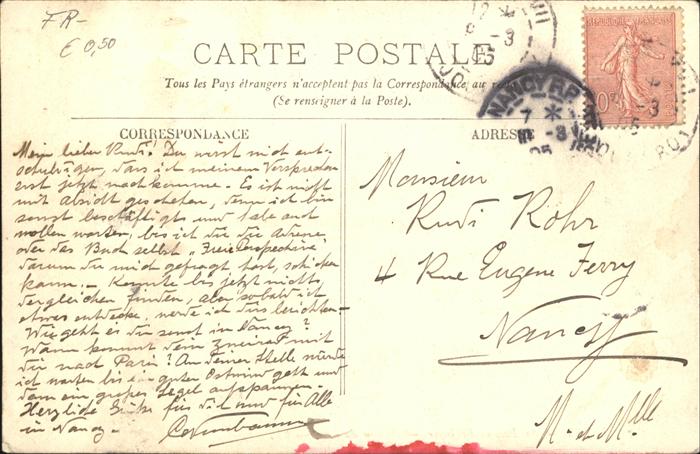 FR-
€ 0,50
CARTE POSTALE
Tous les Pays étrangers n'acceptent pas la Correspondance au
(Se renseigner à la Poste).
CORRESPONDANCE
Mein lieber Rudi! Du wirst mich ent-
schuldigen, dass ich meinem Versprechen
erst jetzt nachkomme. Es ist nicht
mit Absicht geschehen, denn ich bin
sonst beschäftigt und habe auch
wollen warten, bis ich dir die Adresse
oder das Buch selbst „Freie Perspective"
darum du mich gefragt hast, schicken
kann. - Konnte bis jetzt nichts
dergleichen finden, aber sobald ich
etwas entdecke, werde ich dirs berichten -
Wie geht es dir sonst in Nancy?
Wann kommst denn mit
dir nach Paris? An deiner Stelle würde
ich warten bis ein guten Ostwind geht und
dann ein grosses Segel aufspannen.
Herzliche Grüße für dich und für Alle
in Nancy -
ADRESSE
Monsieur
Rudi Rohr
4 Rue Eugene Ferry
Nancy
M. et Mlle
RÉPUBLIQUE FRANÇAISE
10c
NANCY R.P.
7 *
-3
05